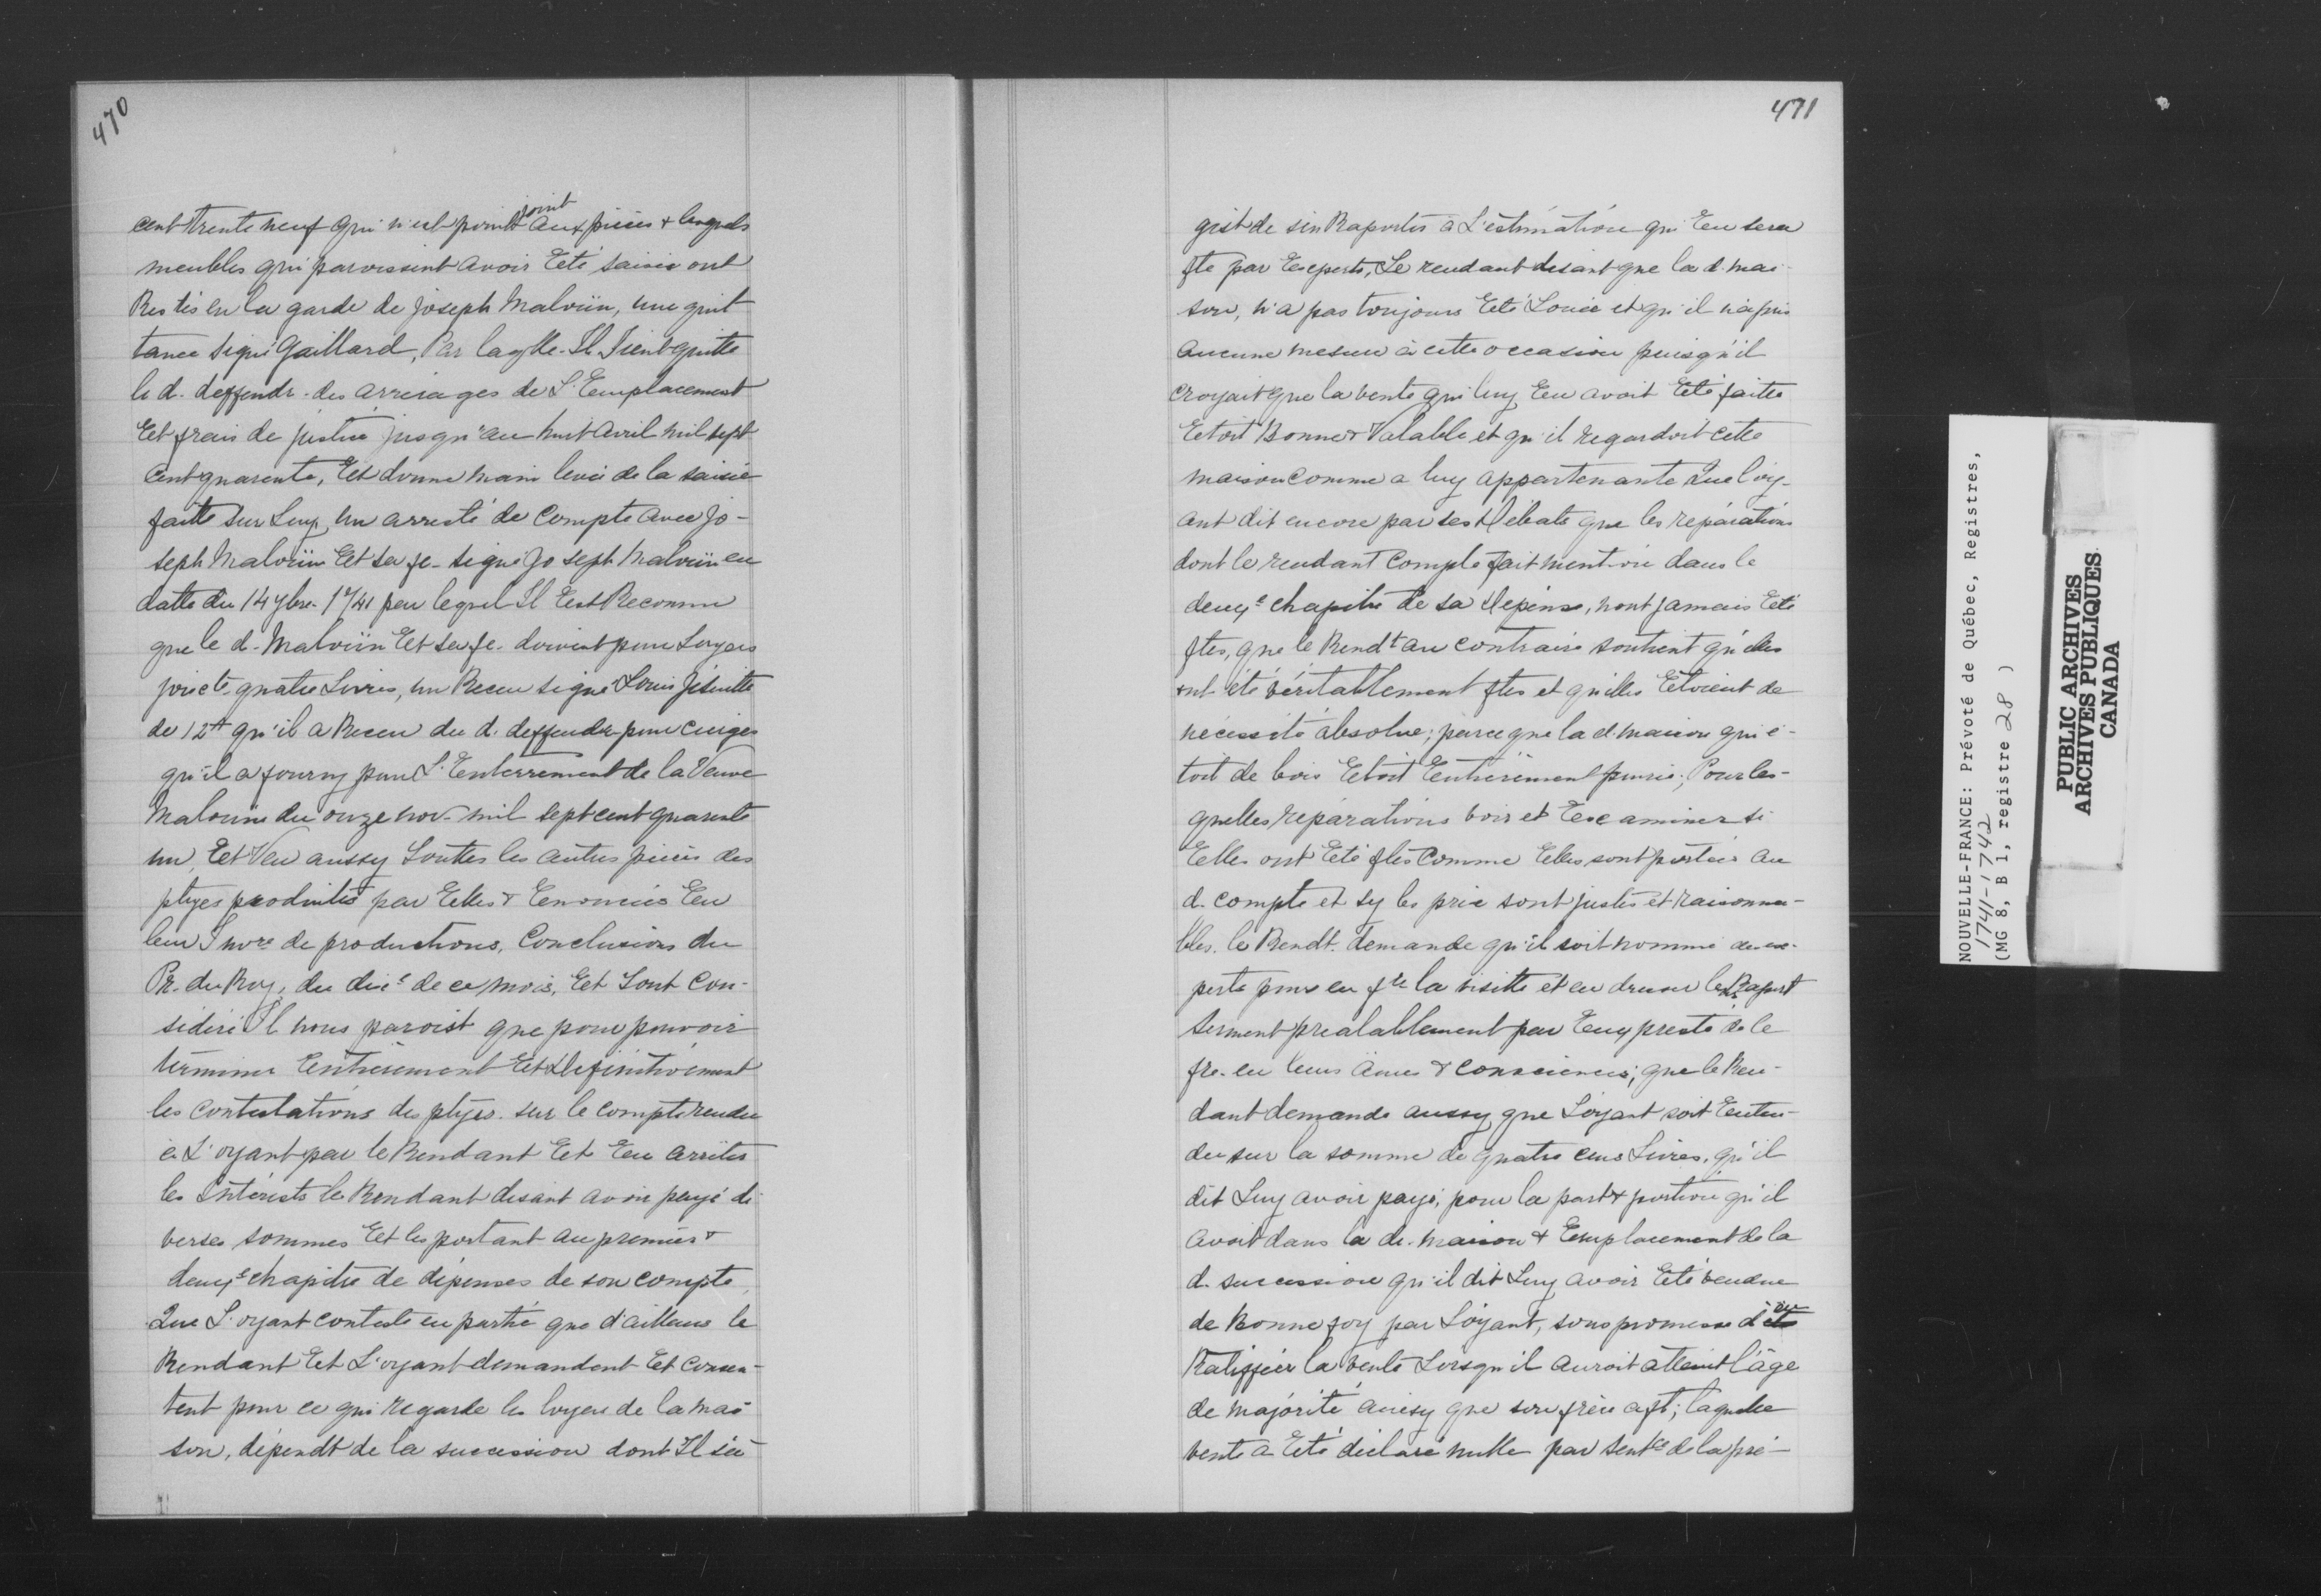 470
cent trente neuf qui n'est point joint aux pièces & lesquels
meubles qui paroissent avoir Eté saisis ont
Restés en la garde de joseph Malvüin, une quit
tance signé Gaillard, Par laqlle. Il Tient quitte
le d. deffendr. des arrerages de L'Emplacement
Et frais de justice jusqu'au huit avril mil sept
cent quarente, Et donne main levée de la saisie
faitte sur Luy, un arresté de compte avec Jo-
seph Malvüin Et sa fe. signé Joseph Malvüin en
datte du 14 7bre. 1741 par lequel Il Est Reconnu
que le d. Malvüin Et sa fe. doivent pour Loyers
quatre Livres, un Receu signé Louis Jésuitte
de 12tt qu'il a Receu du d. deffendr pour cierges
qu'il a fourny pour L'Enterrement de la Veuve
Malouin du onze nov. mil sept cent quarente
un, Et Veu aussy Touttes les autres pièces des
ptyes produites par Elles & Enoncées En
leur Invre de productions, Conclusions du
Pr. du Roy, du dixe de ce mois, Et Tout Con-
sideré Il nous paroist que pour pouvoir
terminer Entièrement Et Definitivement
les contestations des ptyes. sur le compte rendu
à L'oyant par le Rendant Et En arrêter
les Intérists le Rendant disant avoir payé di
verses sommes Et les portant au premier &
deuxe chapitre de dépenses de son compte,
Que L'oyant conteste en partie que d'ailleurs le
Rendant Et L'oyant demandent Et consen-
tent pour ce qui regarde les loyers de la mai
son, dépendt de la succession dont Il s'a-
471
gist de s'en Raporter à L'éstimation qui En sera
fte par Experts, Le rendant disant que la d. mai-
son, n'a pas toujours Eté Louée et qu'il n'a pris
aucune mesure à cette occasion puisqu'il
croyait que la vente qui luy En avoit Eté faitte
Etoit Bonne & Valable et qu'il regardoit cette
maison comme a luy appartenante Que l'oy-
ant dit encore par ses Débats que les réparations
dont le rendant compte fait mention dans le
deuxe chapitre de sa Dépense, n'ont jamais Eté
ftes, que le Rendt au contraire soutient qu'elles
ont été véritablement ftes et qu'elles Etoient de
nécessité absolue; parce que la d. maison qui é-
toit de bois Etoit Entièrement pourie; Pour les-
quelles réparations voir et Examiner si
Elles ont Eté ftes comme Elles sont portées au
d. compte et sy les prix sont justes et raisonna-
bles. le Rendt. demande qu'il soit nommé des ex-
perts pour en fre la visitte et en dresser le Raport
serment prealablement par Eux presté de le
fre. en leurs âmes & consciences; que le Ren-
dant demande aussy que L'oyant soit Enten-
du sur la somme de quatre cens Livres, qu'il
dit Luy avoir payé, pour la part & portion qu'il
avoit dans la de. maison & Emplacement de la
d. succession qu'il dit Luy avoir Eté vendue
de Bonne foy par L'oyant, sous promesse d'en
Ratiffier la vente Lorsqu'il auroit atteint l'âge
de majorité ainsy que son frère a ft; laquelle
vente a Eté déclaré nulle par sentce de la pré-
NOUVELLE-FRANCE: Prévoté de Québec, Registres,
1741-1742
(MG 8, B 1, registre 28 )
PUBLIC ARCHIVES
ARCHIVES PUBLIQUES
CANADA